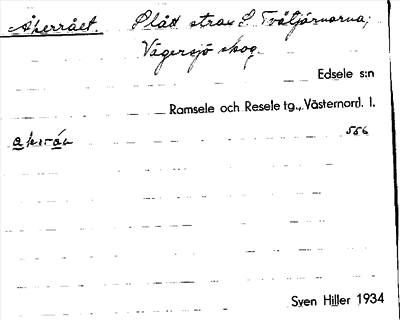 Åkerrået. Slått strax S Tvåtjärnarna;
Vägersjö skog.
Edsele s:n
Ramsele och Resele tg., Västernorrl. l.
556
Sven Hiller 1934